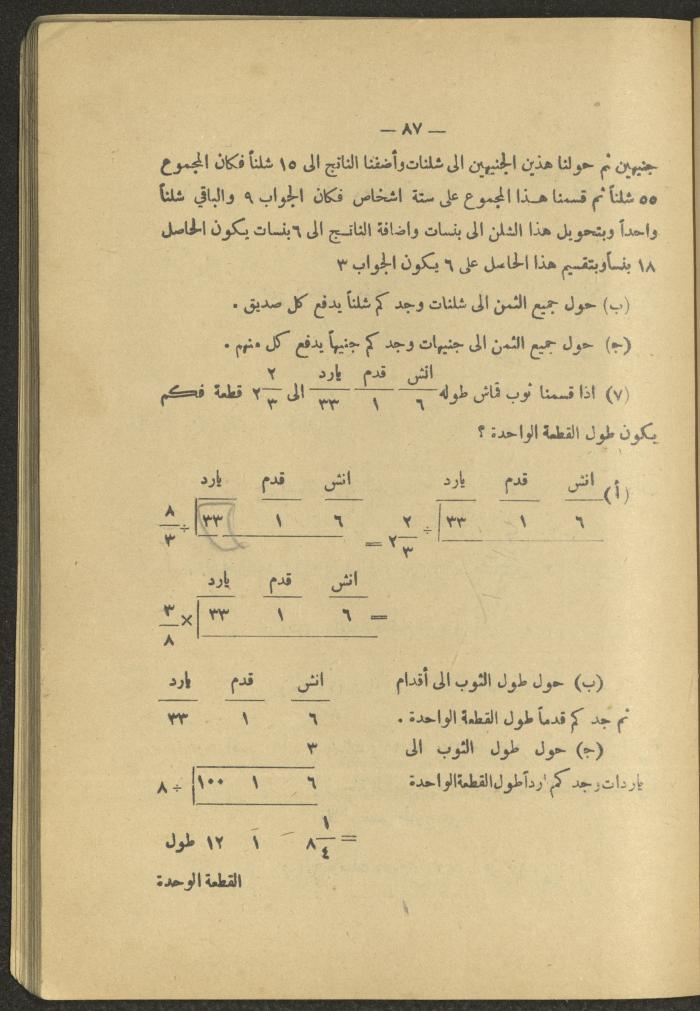 — ٨٧ —
جنيهين ثم حولنا هذين الجنيهين الى شلنات وأضفنا الناتج الى ١٥ شلناً فكان المجموع
٥٥ شلناً ثم قسمنا هـذا المجموع على ستة اشخاص فكان الجواب ٩ والباقي شلناً
واحداً وبتحويل هذا الشلن الى بنسات واضافة الناتـج الى ٦ بنسات يكون الحاصل
١٨ بنساً وبتقسيم هذا الحاصل على ٦ يكون الجواب ٣
(ب) حول جميع الثمن الى شلنات وجد كم شلناً يدفع كل صديق .
(ج) حول جميع الثمن الى جنيهات وجد كم جنيهاً يدفع كل منهم .
انش قدم يارد
(٧) اذا قسمنا ثوب قماش طوله ٦ ١ ٣٣ الى ٢ ٢/٣ قطعة فكم
يكون طول القطعة الواحدة ؟
(أ) انش قدم يارد انش قدم يارد
٦ ١ ٣٣ ÷ ٢ ٢/٣ = ٦ ١ ٣٣ ÷ ٨/٣
انش قدم يارد
= ٦ ١ ٣٣ × ٣/٨
(ب) حول طول الثوب الى أقدام انش قدم يارد
ثم جد كم قدماً طول القطعة الواحدة . ٦ ١ ٣٣
(ج) حول طول الثوب الى ٣
ياردات وجد كم يارداً طول القطعة الواحدة ٦ ١ ١٠٠ ÷ ٨
= ٨ ١/٤ ١ ١٢ طول
القطعة الوحدة